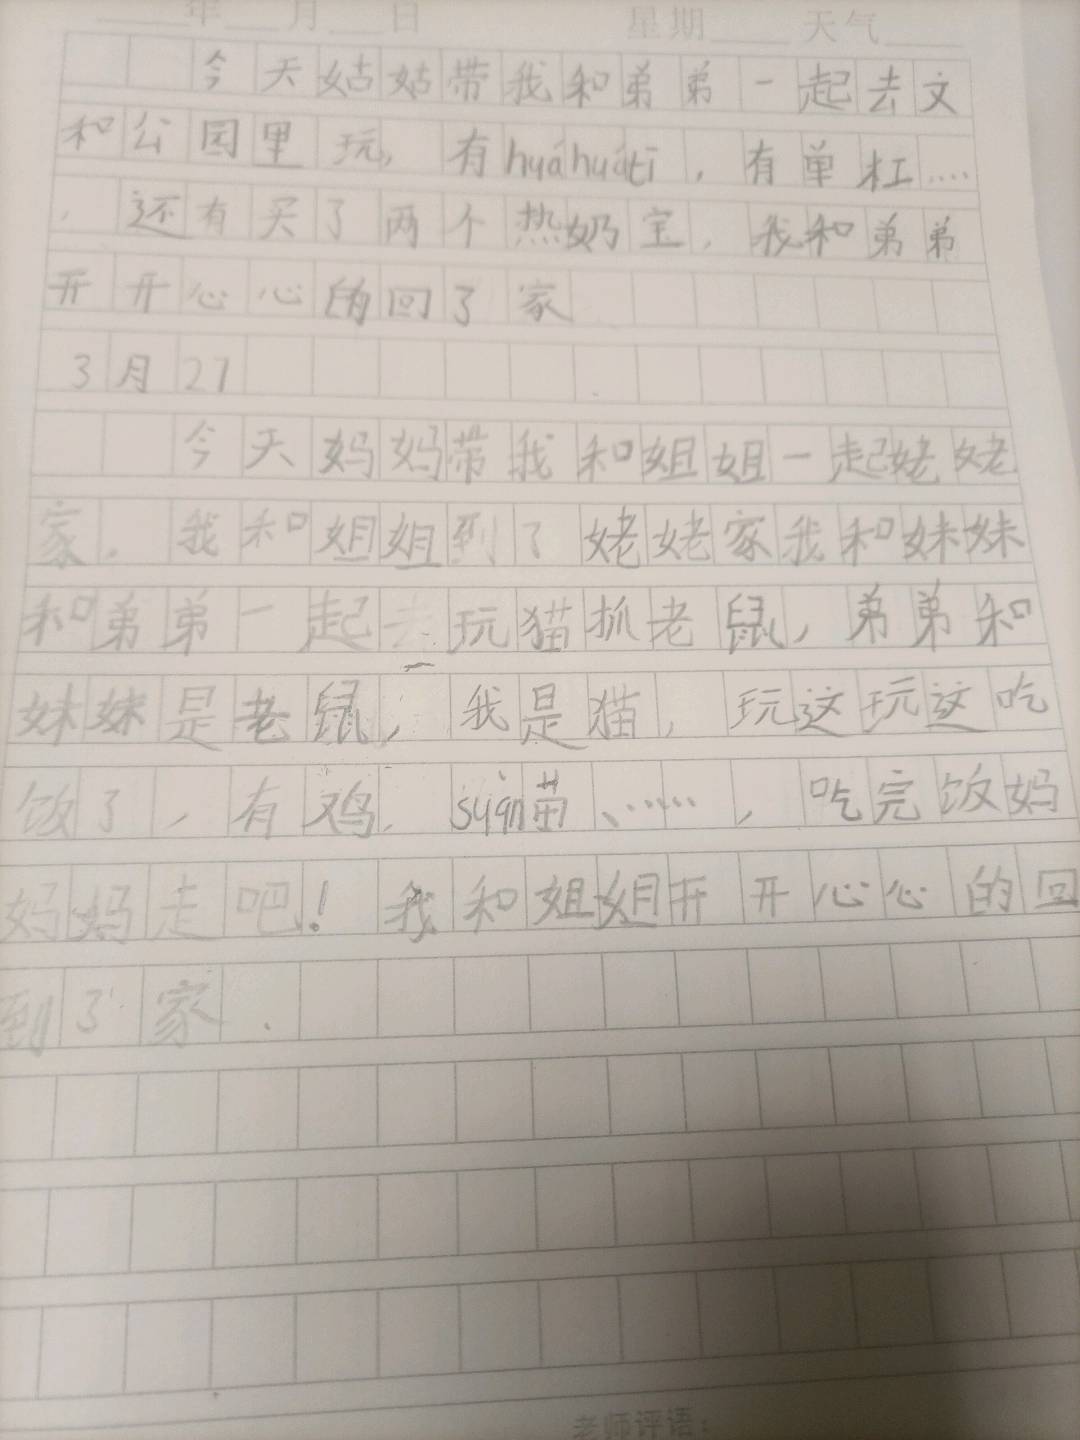 年 月 日 星期 天气
今天姑姑带我和弟弟一起去文
和公园里玩，有huáhuátī，有单杠……
，还有买了两个热奶宝，我和弟弟
开开心心的回了家
3月27
今天妈妈带我和姐姐一起姥姥
家，我和姐姐到了姥姥家我和妹妹
和弟弟一起去玩猫抓老鼠，弟弟和
妹妹是老鼠，我是猫，玩这玩这吃
饭了，有鸡，苗、……，吃完饭妈
妈妈走吧！我和姐姐开开心心的回
到了家．
老师评语：